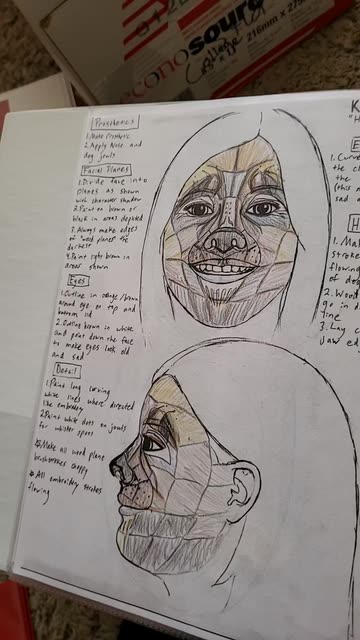 onosource
216mm x 279
College
Prosthetics
1. Make Prosthetic
2. Apply Nose and
dog jowls
Facial Planes
1. Divide face into
planes as shown
with character shader
2. Paint on brown or
black in areas depicted
3. Always make edges
of "wood planes" the
darkest
4. Paint light brown in
areas shown
Eyes
1. Outline in orange/brown
around eye on top and
bottom lid
2. Outline brown in white
and paint down the face
to make eyes look old
and sad
Detail
1. Paint long curving
white lines where directed
like embroidery
2. Paint white dots on jowls
for whisker spots
*Make all wood plane
brushstrokes choppy
*All embroidery strokes
flowing
K
"H
E
1. Curve
the c
the
(this
sad
H
1. Mak
stroke
flowing
of do
2. Wood
go in d
line
3. Lay
jaw ed